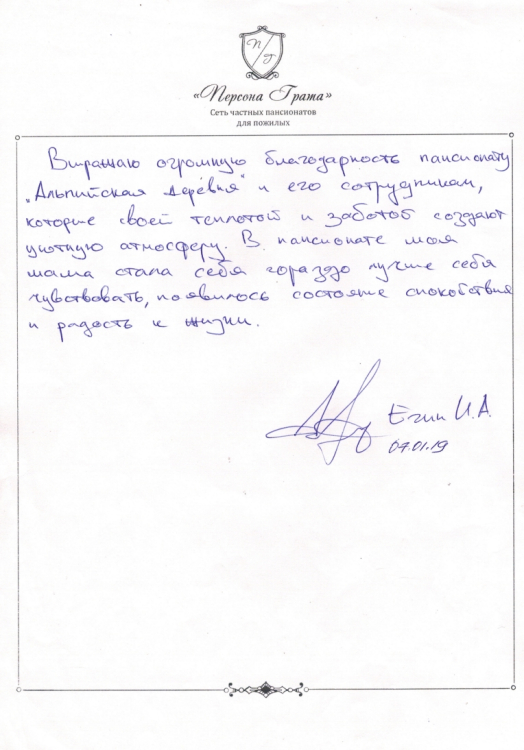 П/Г
«Персона Грата»
Сеть частных пансионатов
для пожилых
Выражаю огромную благодарность пансионату
„Альпийская деревня" и его сотрудникам,
которые своей теплотой и заботой создают
уютную атмосферу. В пансионате моя
мама стала себя гораздо лучше себя
чувствовать, появилось состояние спокойствия
и радость к жизни.
И.А.
04.01.19